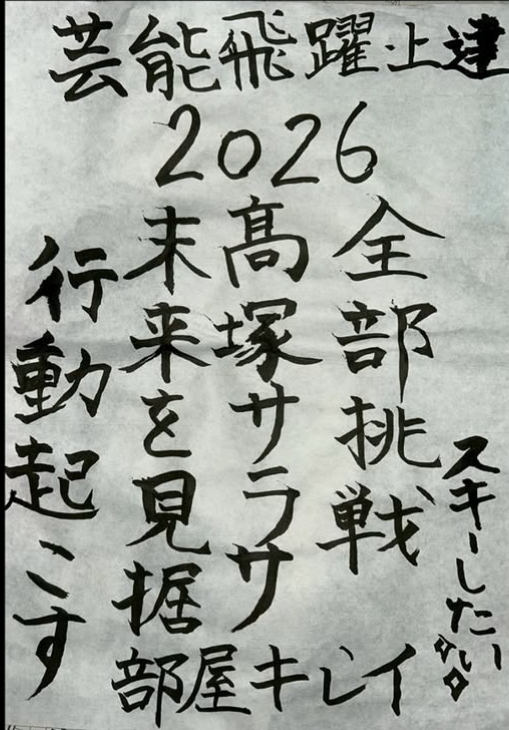 芸能飛躍上達
2026
全部挑戦
スキーしたいな。
高塚サラサ
未来を見据
行動起こす
部屋キレイ